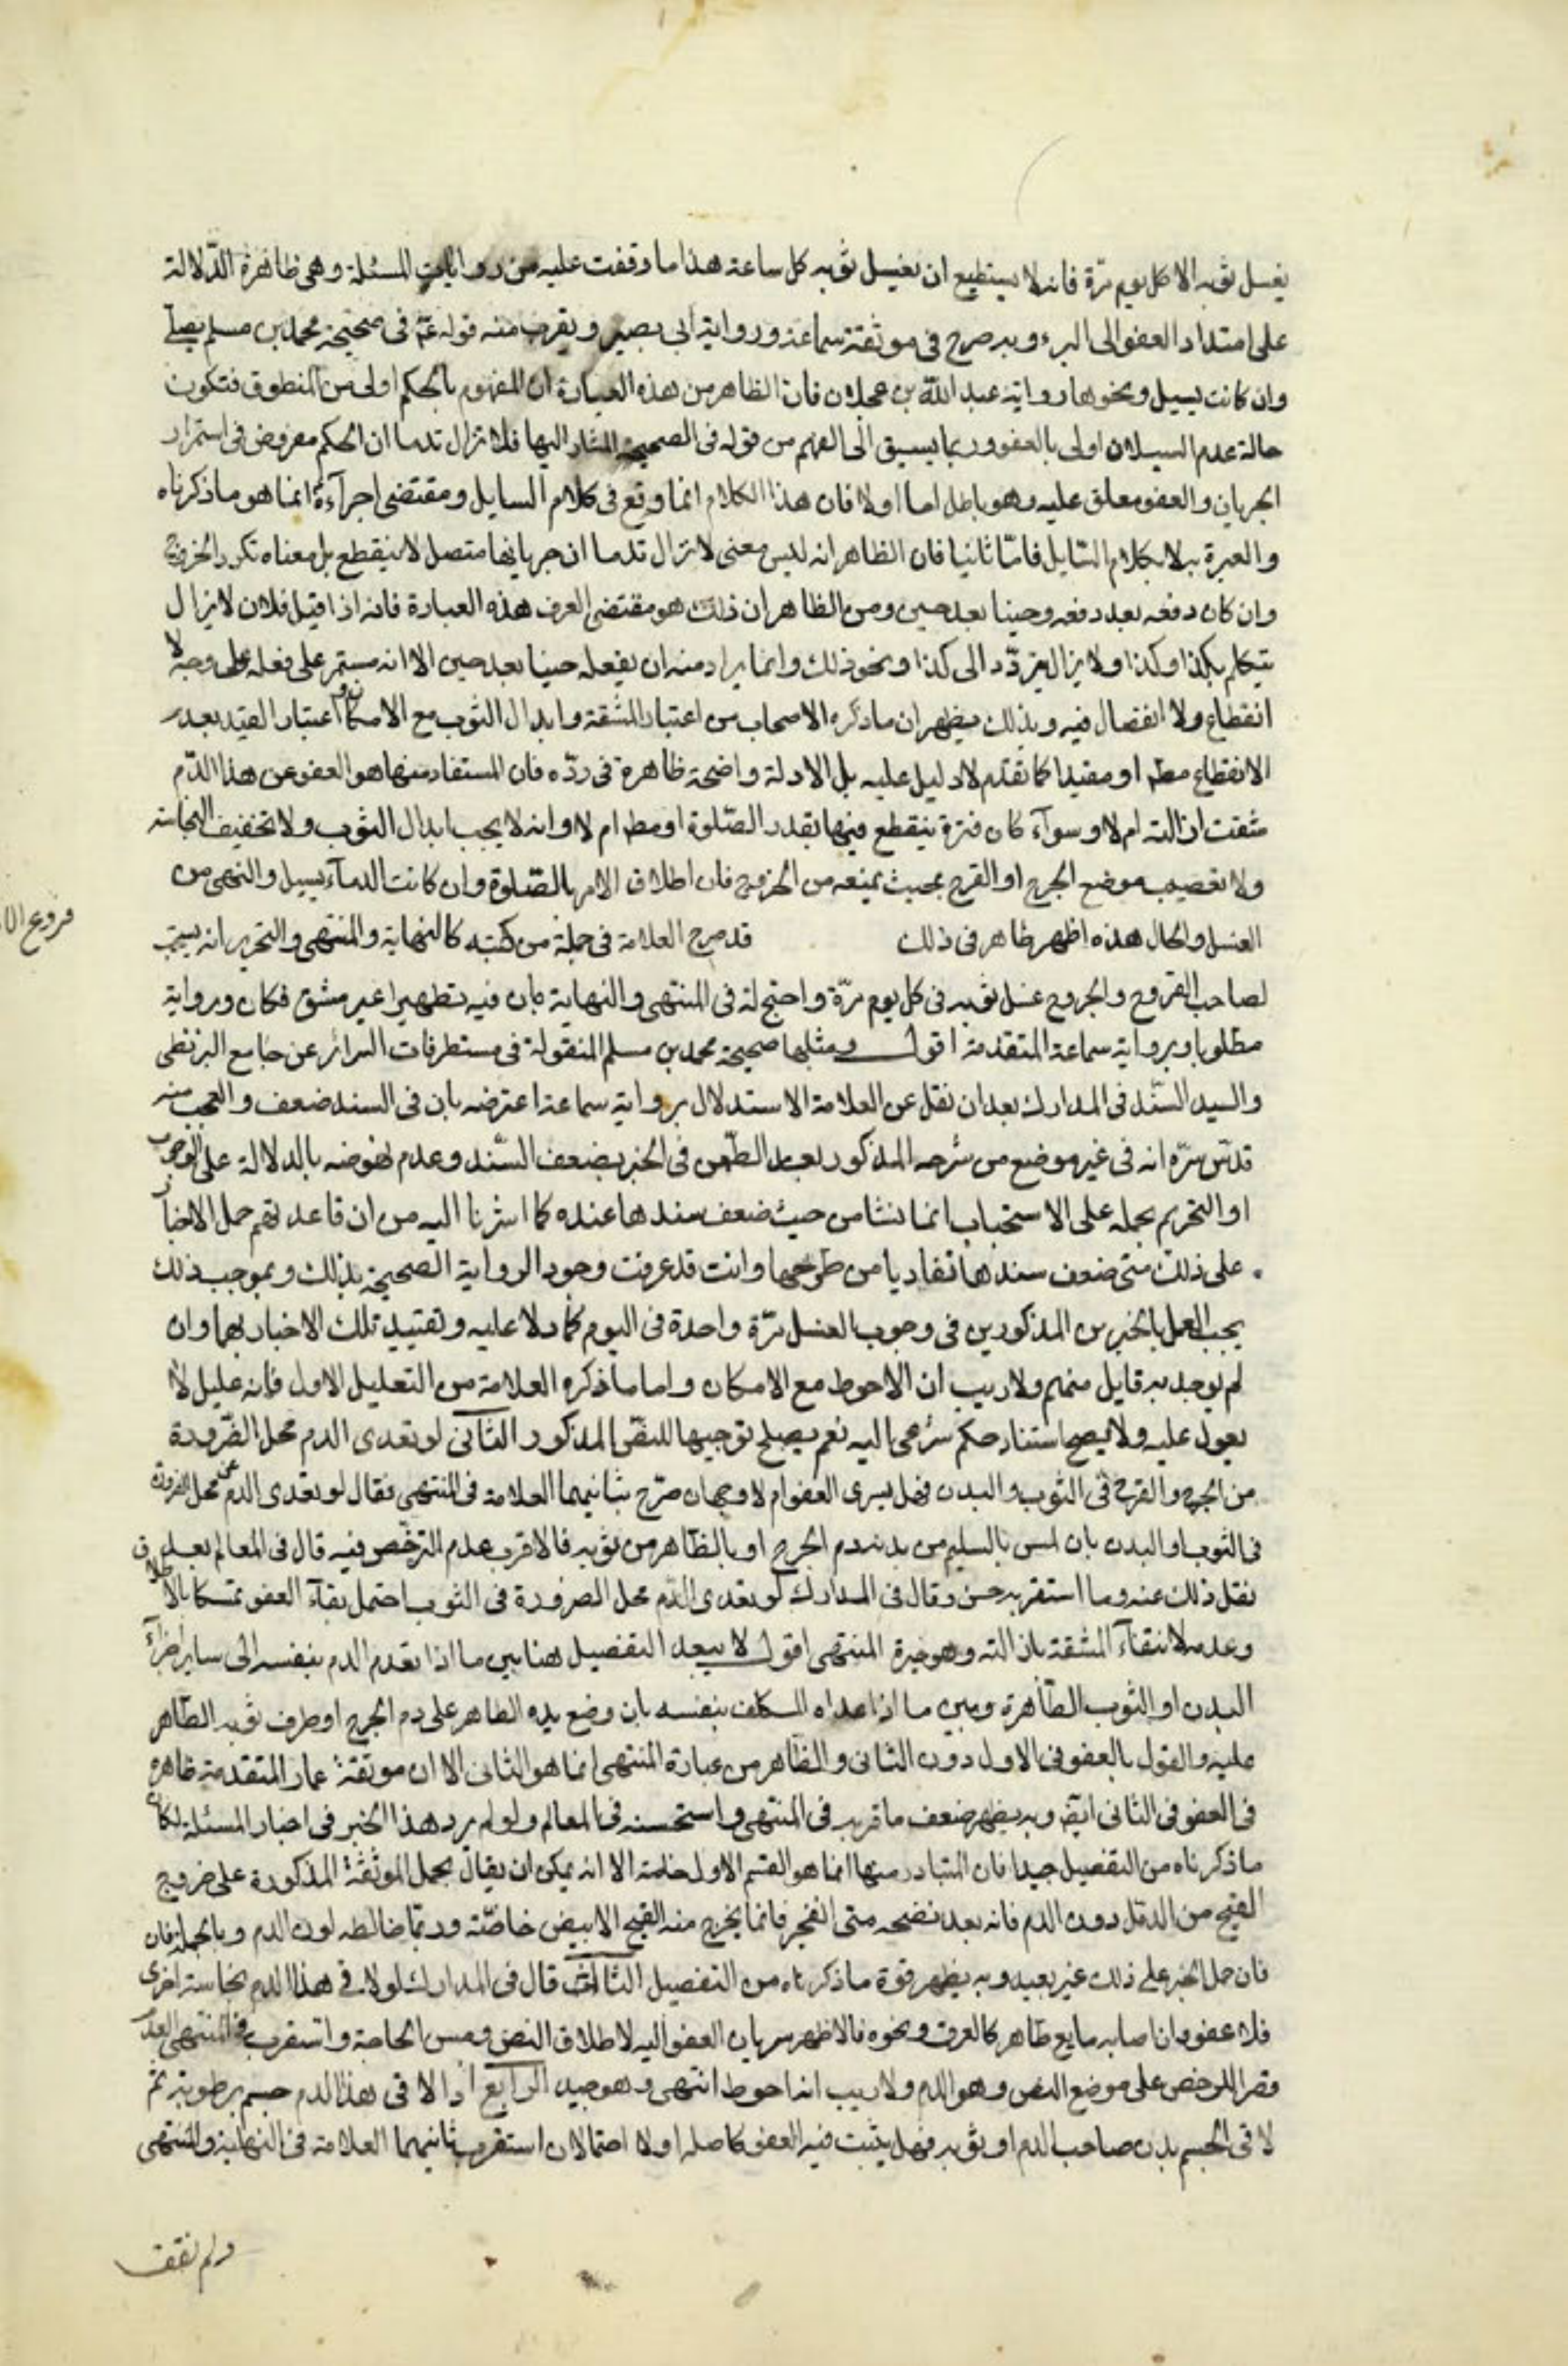 يغسل ثوبه الا كل يوم مرّة فانه لا يستطيع ان يغسل ثوبه كل ساعة هذا ما وقفت عليه من روايات المسئلة وهى ظاهرة الدّلالة
على امتداد العفو الى البرء وبه صرح فى موثقة سماعة ورواية ابى بصير ويقرب منه قوله عم فى صحيحة محمد بن مسلم يصلّى
وان كانت تسيل ونحوها رواية عبد اللّه بن عجلان فان الظاهر من هذه العبارة ان المفهوم بالحكم اولى من المنطوق فتكون
حالة عدم السيلان اولى بالعفو وربما يسبق الى الفهم من قوله فى الصحيحة المشار اليها فلا تزال تدما ان الحكم مفروض فى استمرار
الجريان والعفو معلق عليه وهو باطل اما اولا فان هذا الكلام انما وقع فى كلام السايل ومقتضى اجرآءة انما هو ما ذكرناه
والعبرة به لا بكلام السّايل فامّا ثانيا فان الظاهر انه ليس معنى لا تزال تدما ان جريانها متصل لا ينقطع بل معناه تكرر الخروج
وان كان دفعه بعد دفعه وحينا بعد حين ومن الظاهر ان ذلك هو مقتضى العرف هذه العبارة فانه اذا قيل فلان لا يزال
يتكلم بكذا وكذا ولا يزال يتردّد الى كذا ونحو ذلك وانما يراد منه ان يفعله حينا بعد حين الا انه مستمر على فعله على وجه لا
انقطاع ولا انفصال فيه وبذلك يظهر ان ما ذكره الاصحاب من اعتبار المشقة وابدال الثوب مع الامكان او اعتبار القيد بعدم
الانقطاع مطم او مقيدا كما تقدم لا دليل عليه بل الادلة واضحة ظاهرة فى ردّه فان المستفاد منها هو العفو عن هذا الدّم
شقت ازالته ام لا وسوآء كان فترة ينقطع فيها بقدر الصّلوة او مطم ام لا وانه لا يجب ابدال الثوب ولا تخفيف النجاسة
ولا تعصيب موضع الجرح او القرح بحيث يمنعه من الخروج فان اطلاق الامر بالصّلوة وان كانت الدمآء تسيل والنهى من
الغسل والحال هذه اظهر ظاهر فى ذلك قد صرح العلامة فى جملة من كتبه كالنهاية والمنتهى والتحرير انه يستحب
فروع الا
لصاحب القروح والجروح غسل ثوبه فى كل يوم مرّة واحتج له فى المنتهى والنهاية بان فيه تطهيرا غير مشق فكان ورواية
مطلوبا وبرواية سماعة المتقدمة اقول ومثلها صحيحة محمد بن مسلم المنقولة فى مستطرفات السرائر عن جامع البزنطى
والسيد السّند فى المدارك بعد ان نقل عن العلامة الاستدلال برواية سماعة اعترضه بان فى السند ضعف والعجب منه
قدّس سرّه انه فى غير موضع من شرحه المذكور بعد الطّعن فى الخبر بضعف السّند وعدم نهوضه بالدلالة على الوجوب
او التحريم يحمله على الاستحباب انما نشا من حيث ضعف سندها عنده كما اشرنا اليه من ان قاعدتهم حمل الاخبار
على ذلك متى ضعف سندها تفاديا من طرحها وانت قد عرفت وجود الرواية الصحيحة بذلك وبموجب ذلك
يجب العمل بالخبرين المذكورين فى وجوب الغسل مرّة واحدة فى اليوم كما دلا عليه وتقييد تلك الاخبار بهما وان
لم يوجد به قايل منهم ولا ريب ان الاحوط مع الامكان واما ما ذكره العلامة من التعليل الاول فانه عليل لا
يعول عليه ولا يصح استناد حكم شرعى اليه نعم يصلح توجيها للنصّ المذكور الثانى لو تعدى الدم محل الضّرورة
من الجرح والقرح فى الثوب والبدن فهل يسرى العفو ام لا وجهان صرّح بثانيهما العلامة فى المنتهى فقال لو تعدى الدم عن محل الضرورة
فى الثوب او البدن بان لمس بالسليم من بدنه دم الجرح او بالظاهر من ثوبه فالاقرب عدم الترخّص فيه قال فى المعالم بعد
نقل ذلك عنه وما استقربه حسن وقال فى المدارك لو تعدى الدّم محل الضرورة فى الثوب احتمل بقآء العفو تمسكا بالاطلاق
وعدمه لانتفآء المشقة بازالته وهو خيرة المنتهى اقول لا يبعد التفصيل هنا بين ما اذا تعدى الدم بنفسه الى ساير اجزآء
البدن او الثوب الطّاهرة وبين ما اذا عداه المكلف بنفسه بان وضع يده الطاهر على دم الجرح او طرف ثوبه الطّاهر
عليه والقول بالعفو فى الاول دون الثانى والظّاهر من عبارة المنتهى انما هو الثانى الا ان موثقة عمار المتقدمة ظاهرة
فى العفو فى الثانى ايضا وبه يظهر ضعف ما قربه فى المنتهى واستحسنه فى المعالم ولو لم يرد هذا الخبر فى اخبار المسئلة لكان
ما ذكرناه من التفصيل جيدا فان المتبادر منها انما هو القسم الاول خاصة الا انه يمكن ان يقال بحمل الموثقة المذكورة على خروج
القيح من الدمّل دون الدم فانه بعد نضحه متى انفجر فانما يخرج منه القيح الابيض خاصّة وربّما خالطه لون الدم وبالجملة فان
فان حمل الخبر على ذلك غير بعيد وبه يظهر قوة ما ذكرناه من التفصيل الثالث قال فى المدارك لو لاقى هذا الدم نجاسة اخرى
فلا عفو وان اصابه مايع طاهر كالعرق ونحوه فالاظهر سريان العفو اليه لاطلاق النص ومس الحاجة واستقرب فى المنتهى العدم
قصرا للرخص على موضع النص وهو الدم ولا ريب انه احوط انتهى وهو جيد الرابع اذا لاقى هذا الدم جسم برطوبة ثم
لاقى الجسم بدن صاحب الدم او ثوبه فهل يثبت فيه العفو كاصله او لا احتمالان استقرب ثانيهما العلامة فى النهاية والمنتهى
ولم نقف